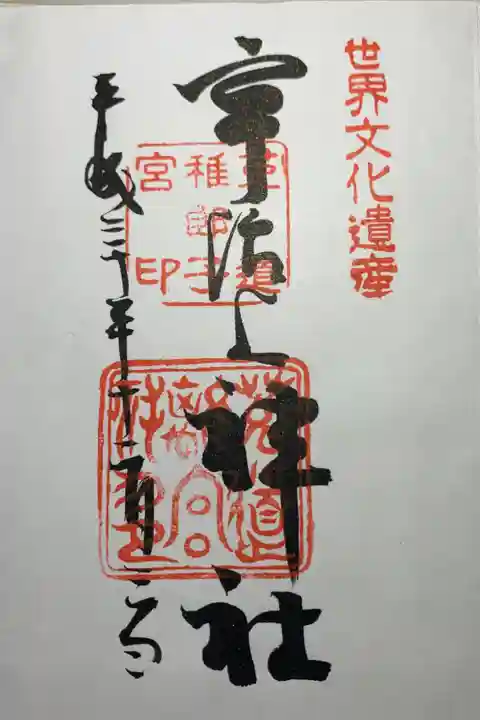 世界文化遺産
宇治上神社
菟道
稚郎子
宮印
平成三十年
月二日